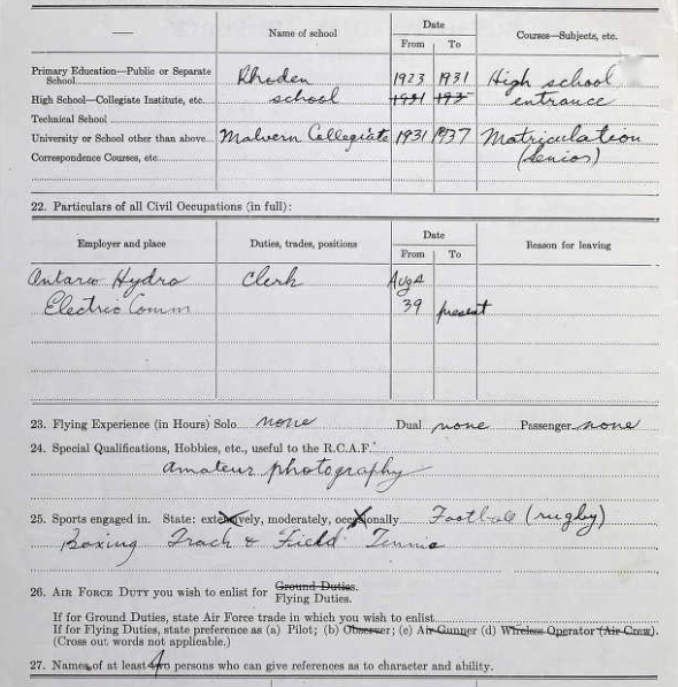 Date
Name of school Courses—Subjects, etc.
From To
Primary Education—Public or Separate
School Rhoden 1923 1931 High school
High School—Collegiate Institute, etc. school 1931 193 entrance
Technical School
University or School other than above Malvern Collegiate 1931 1937 Matriculation
Correspondence Courses, etc. (senior)
22. Particulars of all Civil Occupations (in full):
Date
Employer and place Duties, trades, positions Reason for leaving
From To
Ontario Hydro Clerk Aug 4
Electric Comm 39 present
23. Flying Experience (in Hours) Solo none Dual none Passenger none
24. Special Qualifications, Hobbies, etc., useful to the R.C.A.F.
amateur photography
25. Sports engaged in. State: extensively, moderately, occasionally Football (rugby)
Boxing Track & Field Tennis
26. AIR FORCE DUTY you wish to enlist for Ground Duties.
Flying Duties.
If for Ground Duties, state Air Force trade in which you wish to enlist
If for Flying Duties, state preference as (a) Pilot; (b) Observer; (c) Air Gunner (d) Wireless Operator (Air Crew).
(Cross out words not applicable.)
27. Names of at least persons who can give references as to character and ability.